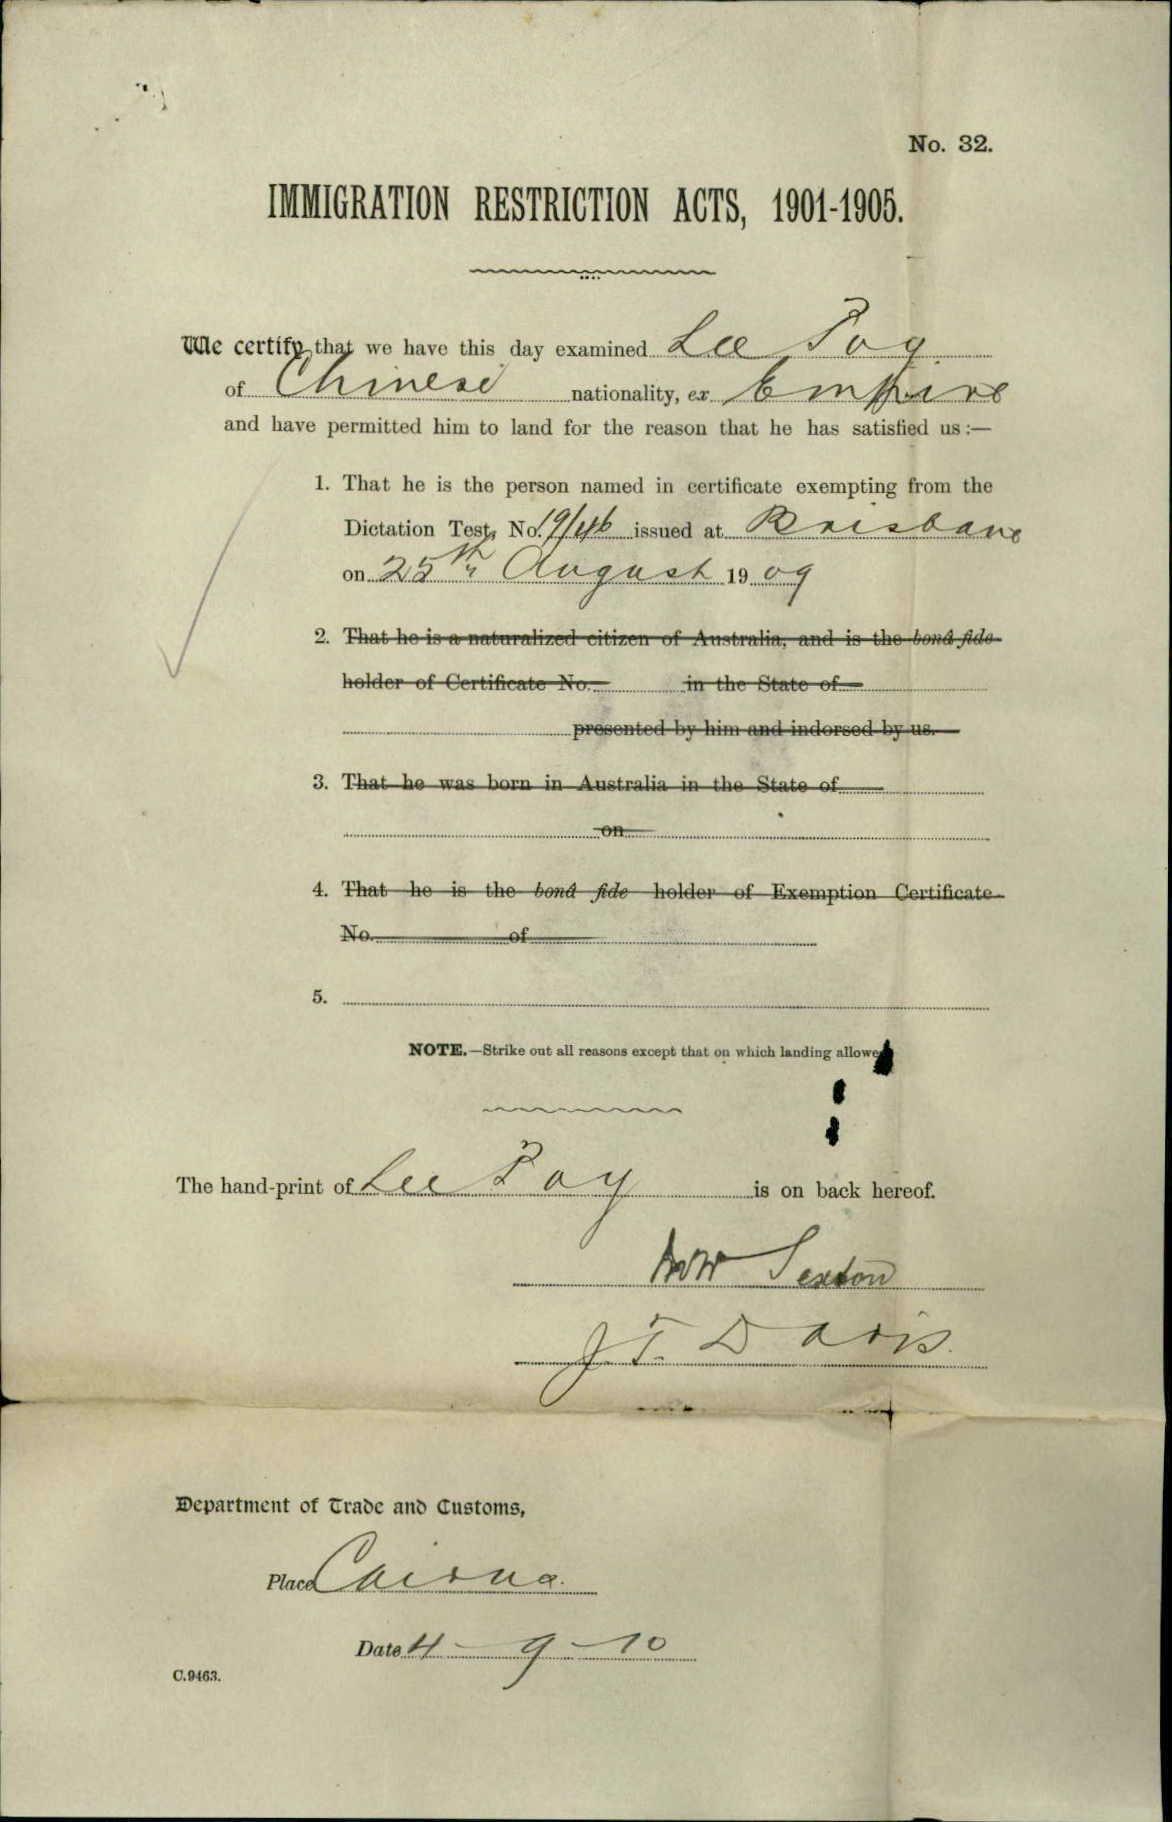 No. 32.
IMMIGRATION RESTRICTION ACTS, 1901-1905.
We certify that we have this day examined Lee Poy
of Chinese nationality, ex Empire
and have permitted him to land for the reason that he has satisfied us :—
1. That he is the person named in certificate exempting from the
Dictation Test, No. 19/46 issued at Brisbane
on 25th August 1909
2. That he is a naturalized citizen of Australia, and is the bonâ fide
holder of Certificate No. in the State of
presented by him and indorsed by us.
3. That he was born in Australia in the State of
on
4. That he is the bonâ fide holder of Exemption Certificate
No. of
5.
NOTE.—Strike out all reasons except that on which landing allowed
The hand-print of Lee Poy is on back hereof.
Sexton
J. T. Davis.
Department of Trade and Customs,
Place Cairns.
Date 4-9-10
C.9463.